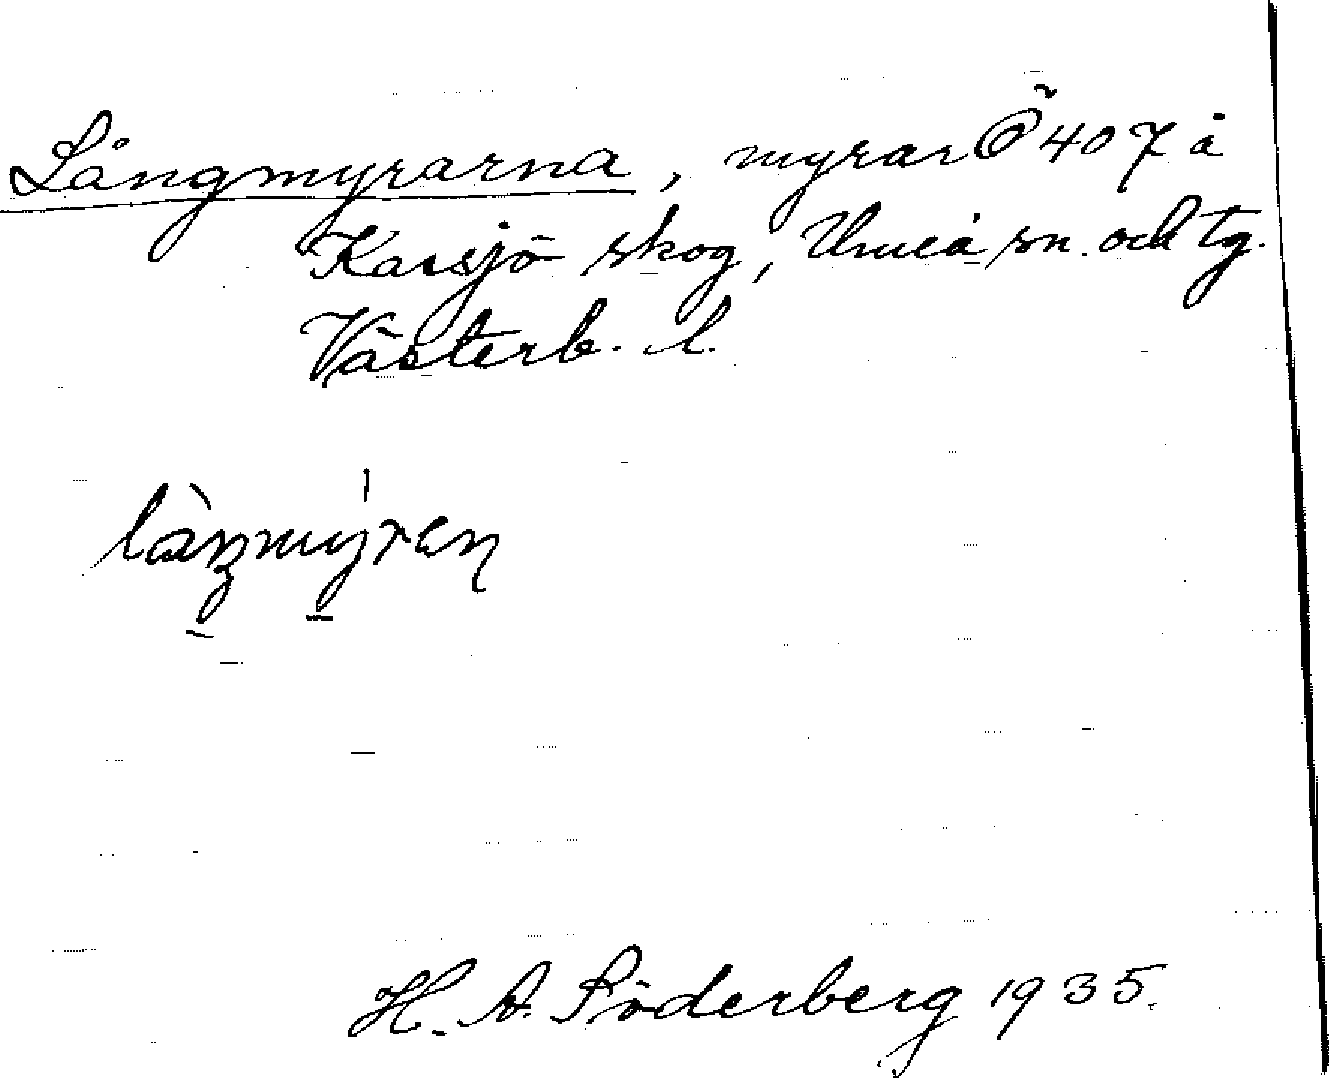 Långmyrarna, myrar Ö 407 å
Kassjö skog, Umeå sn. och tg.
Västerb. l.
H. A. Söderberg 1935.